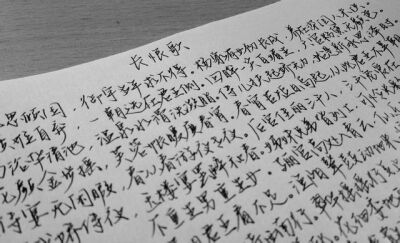 长恨歌
思倾国 御宇多年求不得。杨家有女初长成 养在深闺人未识。
自弃,一朝选在君王侧。回眸一笑百媚生,六宫粉黛无颜色。
浴华清池 温泉水滑洗凝脂。侍儿扶起娇无力 始是新承恩泽时。
花颜金步摇,芙蓉帐暖度春宵。春宵苦短日高起,从此君王不早朝
侍宴无闲暇,春从春游夜专夜。后宫佳丽三千人,三千宠爱在
娇侍夜,玉楼宴罢醉和春。姊妹弟兄皆列土,可怜光彩
不重生男重生女。骊宫高处入青云,仙
君王看不足。渔阳鼙鼓动地来
西南行。翠华摇摇行复止
花钿委地